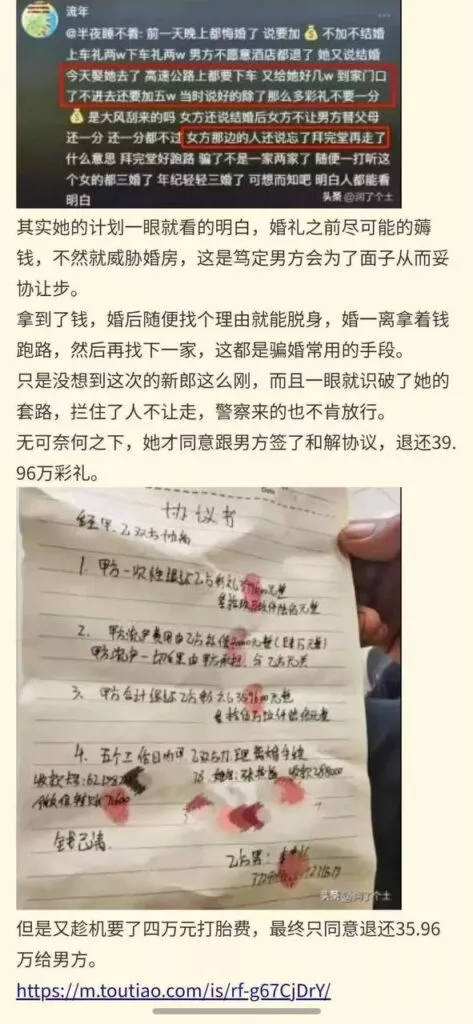 流年
@半夜睡不着: 前一天晚上都悔婚了 说要加💰 不加不结婚
上车礼两w下车礼两w 男方不愿意酒店都退了 她又说结婚
今天娶她去了 高速公路上都要下车 又给她好几w 到家门口
了不进去还要加五w 当时说好的除了那么多彩礼不要一分
💰是大风刮来的吗 女方还说结婚后女方不让男方替父母
还一分 还一分都不过 女方那边的人还说忘了拜完堂再走了
什么意思 拜完堂好跑路 骗了不是一家两家了 随便一打听这
个女的都三婚了 年纪轻轻三婚了 可想而知吧 明白人都能看
明白
头条 @润了个土
其实她的计划一眼就看的明白，婚礼之前尽可能的薅
钱，不然就威胁婚房，这是笃定男方会为了面子从而妥
协让步。
拿到了钱，婚后随便找个理由就能脱身，婚一离拿着钱
跑路，然后再找下一家，这都是骗婚常用的手段。
只是没想到这次的新郎这么刚，而且一眼就识破了她的
套路，拦住了人不让走，警察来的也不肯放行。
无可奈何之下，她才同意跟男方签了和解协议，退还39.
96万彩礼。
协议书
经甲.乙双方协商
1. 甲方一次性退还乙方彩礼
2. 甲方流产费用由乙方
甲方流产一切后果由甲方承担. 与乙方无关
3. 甲方合计退还乙方彩礼359600元整
4. 五个工作日内 乙双方办理离婚手续
收款
钱已清.
乙方男:
头条 @润了个土
但是又趁机要了四万元打胎费，最终只同意退还35.96
万给男方。
https://m.toutiao.com/is/rf-g67CjDrY/